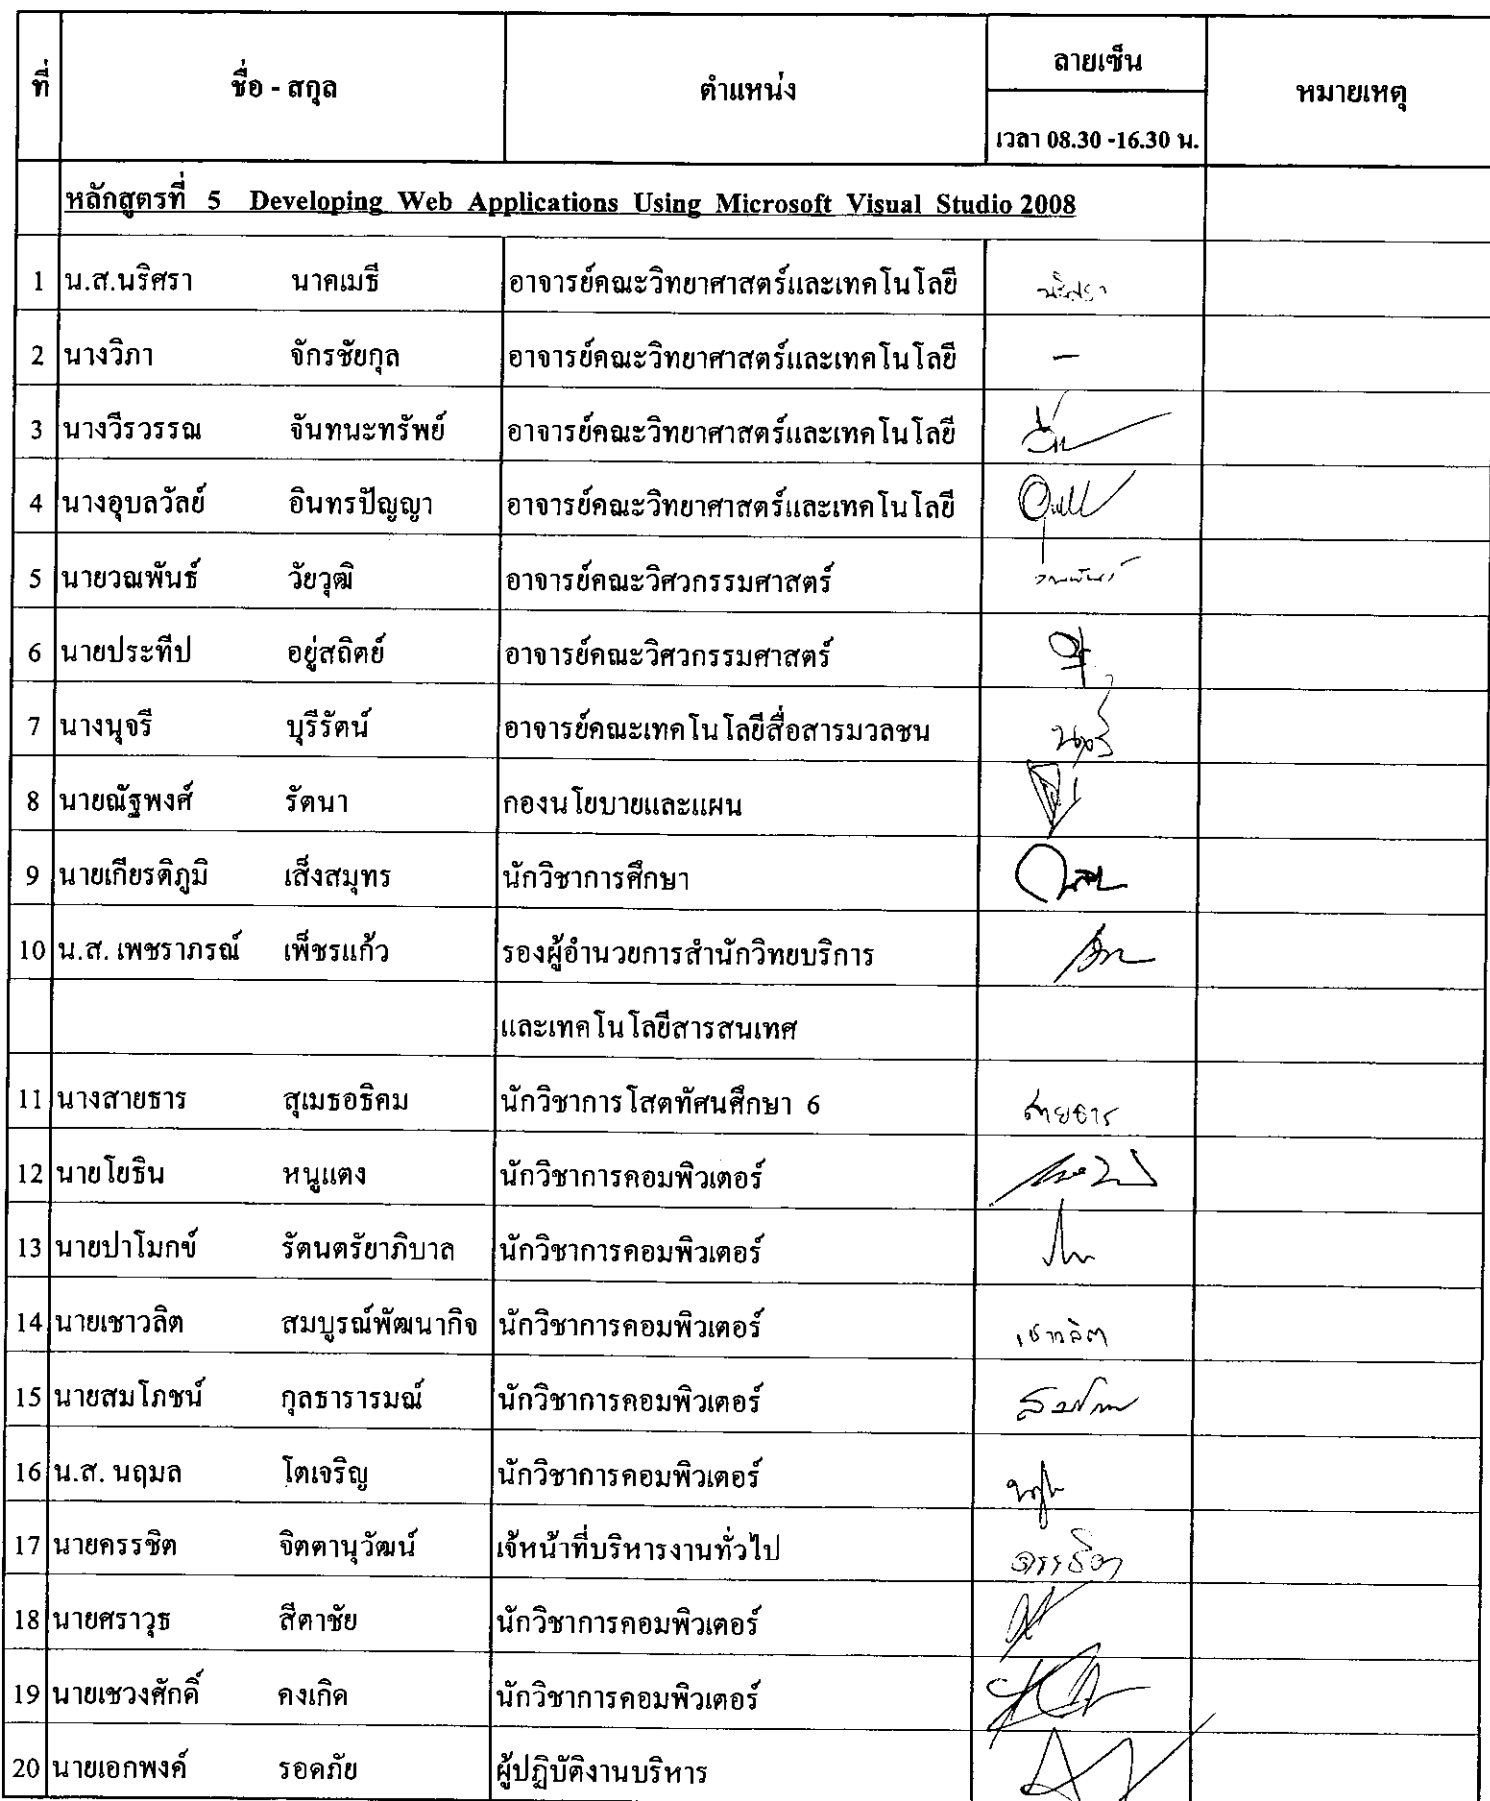 ที่ ชื่อ - สกุล ตำแหน่ง ลายเซ็น หมายเหตุ
เวลา 08.30 -16.30 น.
หลักสูตรที่ 5 Developing Web Applications Using Microsoft Visual Studio 2008
1 น.ส.นริศรา นาคเมธี อาจารย์คณะวิทยาศาสตร์และเทคโนโลยี นริศรา
2 นางวิภา จักรชัยกุล อาจารย์คณะวิทยาศาสตร์และเทคโนโลยี -
3 นางวีรวรรณ จันทนะทรัพย์ อาจารย์คณะวิทยาศาสตร์และเทคโนโลยี
4 นางอุบลวัลย์ อินทรปัญญา อาจารย์คณะวิทยาศาสตร์และเทคโนโลยี
5 นายวณพันธ์ วัยวุฒิ อาจารย์คณะวิศวกรรมศาสตร์ วณพันธ์
6 นายประทีป อยู่สถิตย์ อาจารย์คณะวิศวกรรมศาสตร์
7 นางนุจรี บุรีรัตน์ อาจารย์คณะเทคโนโลยีสื่อสารมวลชน นุจรี
8 นายณัฐพงศ์ รัตนา กองนโยบายและแผน
9 นายเกียรติภูมิ เส็งสมุทร นักวิชาการศึกษา
10 น.ส. เพชราภรณ์ เพ็ชรแก้ว รองผู้อำนวยการสำนักวิทยบริการ
และเทคโนโลยีสารสนเทศ
11 นางสายธาร สุเมธอธิคม นักวิชาการโสตทัศนศึกษา 6 สายธาร
12 นายโยธิน หนูแดง นักวิชาการคอมพิวเตอร์
13 นายปาโมกข์ รัตนตรัยาภิบาล นักวิชาการคอมพิวเตอร์
14 นายเชาวลิต สมบูรณ์พัฒนากิจ นักวิชาการคอมพิวเตอร์ เชาวลิต
15 นายสมโภชน์ กุลธารารมณ์ นักวิชาการคอมพิวเตอร์
16 น.ส. นฤมล โตเจริญ นักวิชาการคอมพิวเตอร์
17 นายครรชิต จิตตานุวัฒน์ เจ้หน้าที่บริหารงานทั่วไป ครรชิต
18 นายศราวุธ สีตาชัย นักวิชาการคอมพิวเตอร์
19 นายเชวงศักดิ์ คงเกิด นักวิชาการคอมพิวเตอร์
20 นายเอกพงค์ รอดภัย ผู้ปฏิบัติงานบริหาร